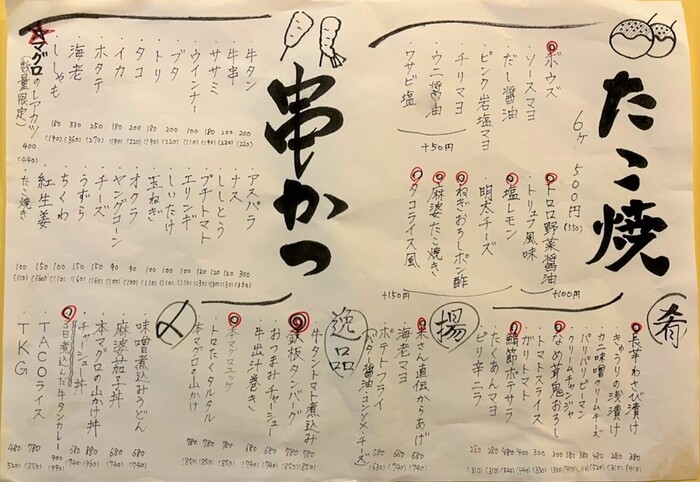 たこ焼
6ヶ 500円 (550)
・ボウズ
・ソースマヨ
・だし醤油
・ピンク岩塩マヨ
・チリマヨ
・ウニ醤油
・ワサビ塩
+50円
・トロロ野菜醤油
・トリュフ風味
・塩レモン
+100円
・明太チーズ
・ねぎおろしポン酢
・麻婆たこ焼き
・タコライス風
+150円
串かつ
・牛タン 200 (220)
・牛串 200 (220)
・ササミ 180 (190)
・ウインナー 100 (110)
・ブタ 200 (220)
・トリ 180 (190)
・タコ 200 (220)
・イカ 180 (190)
・ホタテ 250 (270)
・海老 330 (360)
・ししゃも 180 (190)
マグロのレアカツ (数量限定) 400 (440)
・アスパラ 300 (330)
・ナス 120 (130)
・ししとう 120 (130)
・プチトマト 120 (130)
・エリンギ 100 (110)
・しいたけ 100 (110)
・玉ねぎ 100 (110)
・オクラ
・ヤングコーン
・チーズ 150 (160)
・うずら 150 (160)
・ちくわ 100 (110)
・紅生姜 150 (160)
・たこ焼き 100 (110)
肴
長芋わさび漬け 380 (410)
きゅうりの浅漬け 280 (310)
パリパリピーマン
ウニ味噌クリームチーズ
クリームチャンジャ
なめ茸鬼おろし
トマトスライス
ガリトマト
鯖節ポテサラ
たくあんマヨ
ピリ辛ニラ 280 (310)
揚
米さん直伝からあげ 680 (740)
海老マヨ 680 (740)
ポテトフライ 580 (630)
(バター醤油・コンソメ・チーズ)
逸品
牛タントマト煮込み 780 (850)
鉄板タンバーグ 780 (850)
おつまみチャーシュー 680 (740)
牛出汁巻き 680 (740)
本マグロユッケ 780 (850)
トロたくタルタル 780 (850)
本マグロの山かけ 780 (850)
〆
味噌煮込みうどん 680 (740)
麻婆茄子丼 680 (740)
本マグロの山かけ丼
チャーシュー丼 680 (740)
3日煮込んだ牛タンカレー 900 (990)
TACOライス 780 (850)
TKG 480 (520)